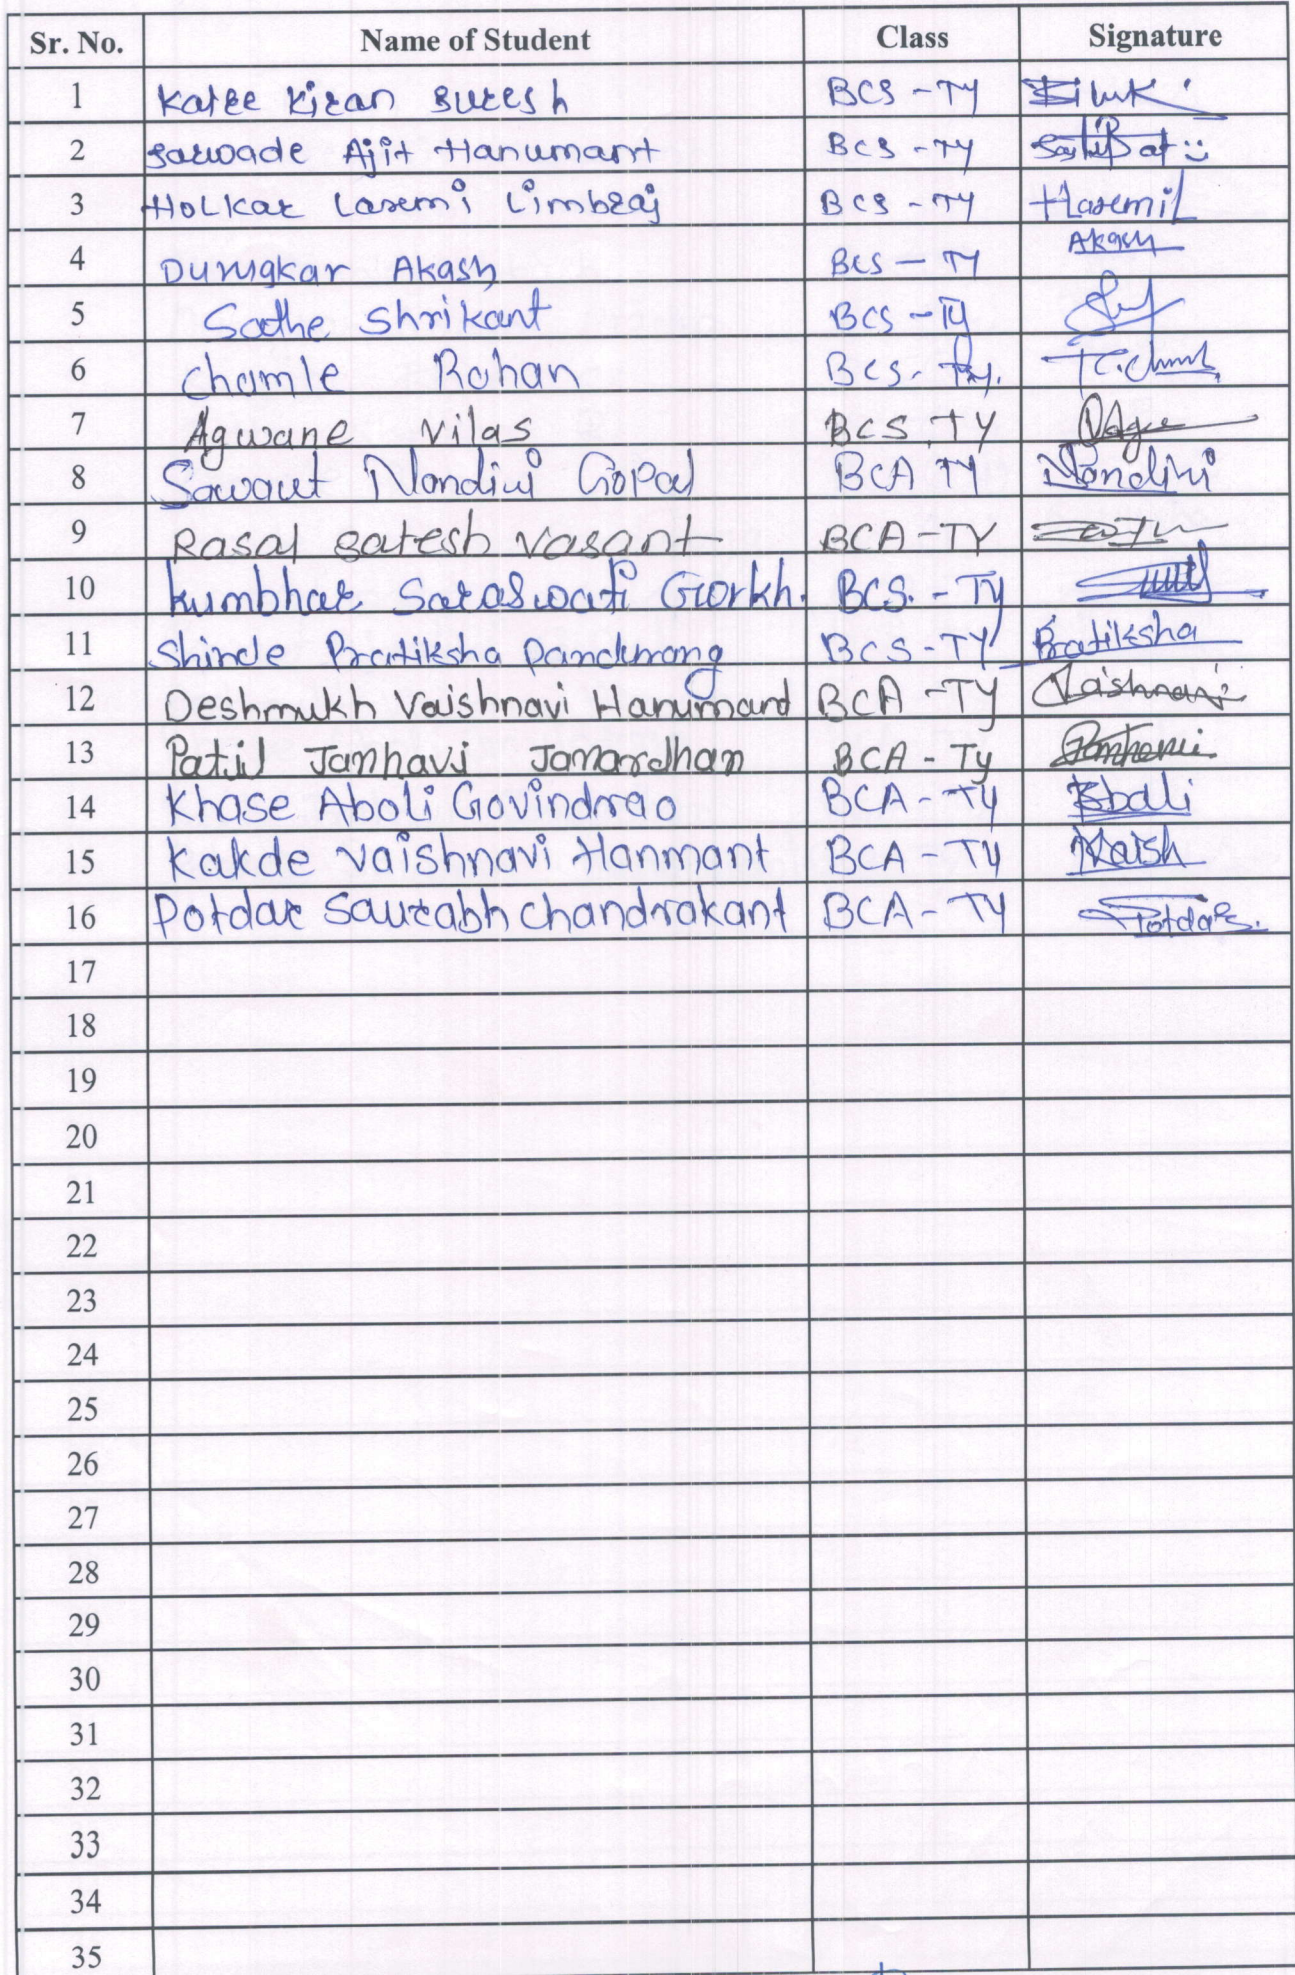 Sr. No. Name of Student Class Signature
1 Katre Kiran Suresh BCS - TY
2 Sarwade Ajit Hanumant BCS - TY
3 Holkar Laxmi Limbraj BCS - TY
4 Durugkar Akash BCS - TY Akash
5 Sathe Shrikant BCS - TY
6 Chamle Rohan BCS - TY.
7 Agwane Vilas BCS TY
8 Sawant Nandini Gopal BCA TY Nandini
9 Rasal Satesh Vasant BCA - TY
10 Kumbhar Saraswati Gorkh. BCS. - TY
11 Shinde Pratiksha Pandurang BCS - TY Pratiksha
12 Deshmukh Vaishnavi Hanumant BCA - TY Vaishnavi
13 Patil Janhavi Janardhan BCA - Ty
14 Khase Aboli Govindrao BCA - TY
15 Kakde Vaishnavi Hanmant BCA - TY Vaish
16 Potdar Saurabh Chandrakant BCA - TY Potdar.
17
18
19
20
21
22
23
24
25
26
27
28
29
30
31
32
33
34
35